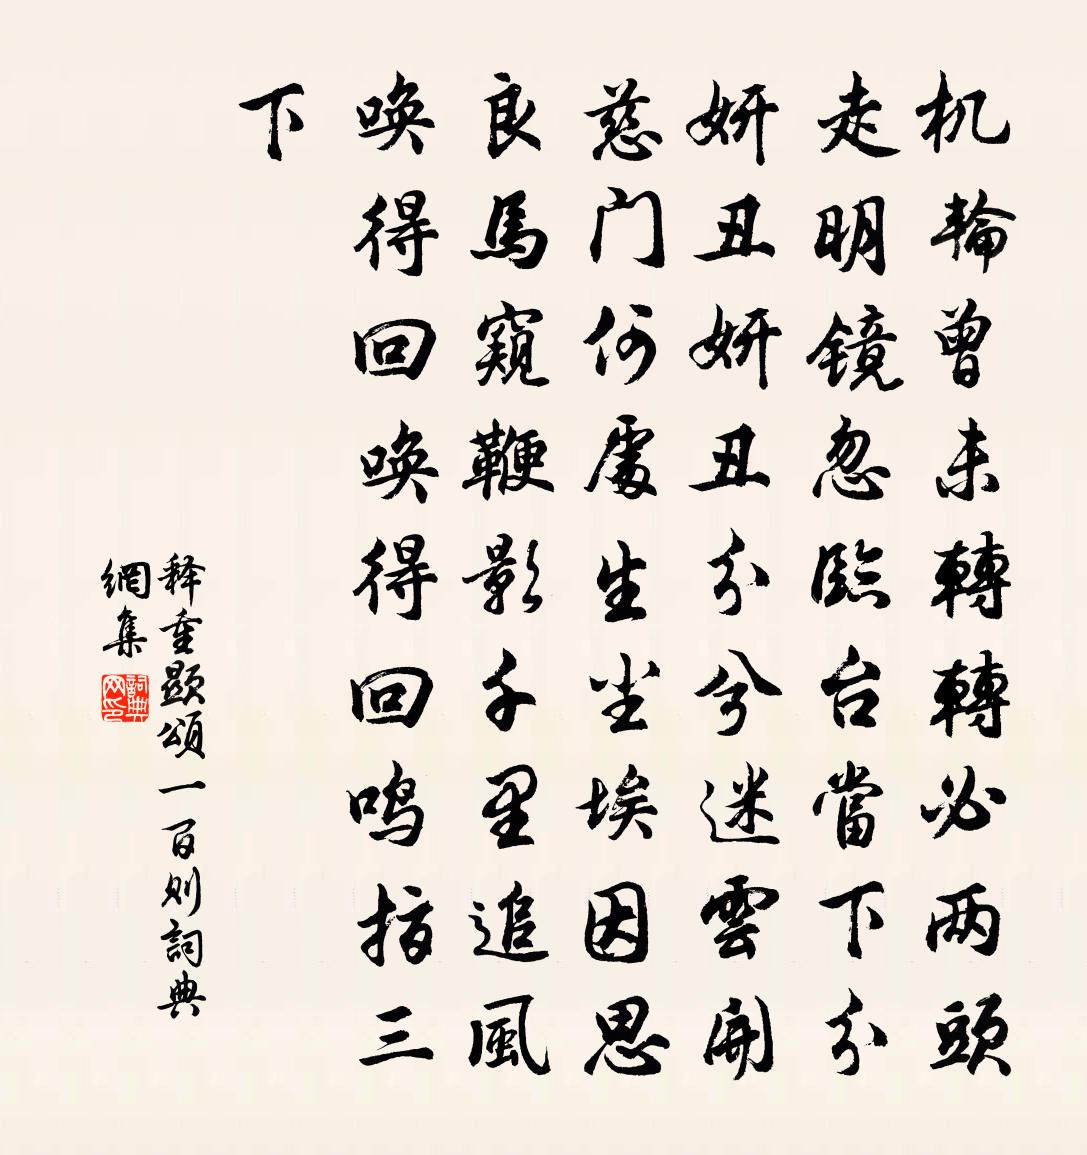 机輪曾未轉轉必两頭
走明镜忽臨台當下分
妍丑妍丑分兮迷雲開
慈门何處生尘埃因思
良馬窺鞭影千里追風
唤得回唤得回鸣指三
下
释重顯頌一百则詞典
網集
詞典网印